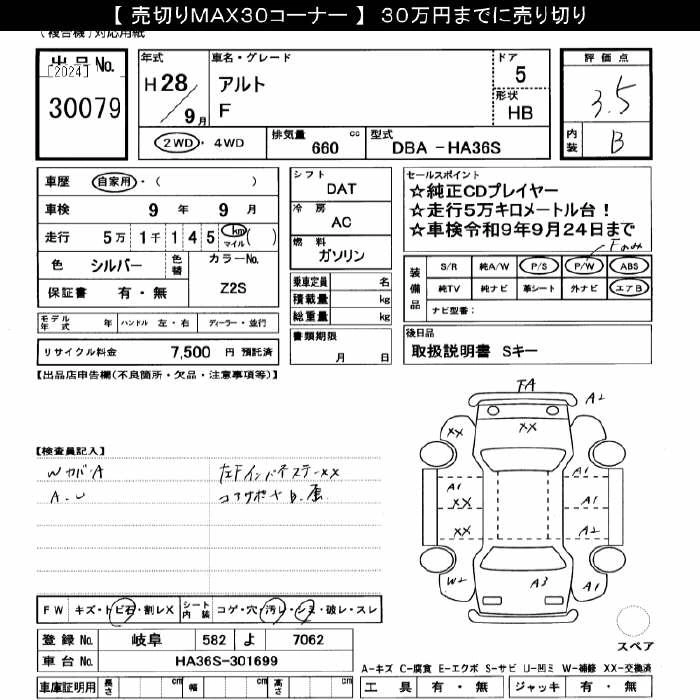 【 売切りMAX30コーナー 】 30万円までに売り切り
(複合機)対応用紙
出品No.
[2024]
30079
年式
H 28 / 9 月
車名・グレード
アルト
F
ドア
5
形状
HB
評価点
3.5
内装
B
2WD ・ 4WD
排気量
660 cc
型式
DBA －HA36S
車歴 自家用 ・( )
車検 9 年 9 月
走行 5万 1千 1 4 5 km マイル ( )
色 シルバー 色替
カラーNo.
Z2S
保証書 有 ・ 無
シフト
DAT
冷房
AC
燃料
ガソリン
乗車定員 名
積載量 kg
総重量 kg
セールスポイント
☆純正CDプレイヤー
☆走行5万キロメートル台！
☆車検令和9年9月24日まで
Fのみ
装備品
S/R 純A/W P/S P/W ABS
純TV 純ナビ 革シート 外ナビ エアB
ナビ型番：
モデル年式 年 ハンドル 左・右 ディーラー・並行
リサイクル料金 7,500 円 預託済
書類期限
月 日
後日品
取扱説明書 Sキー
【出品店申告欄(不良箇所・欠品・注意事項等)】
【検査員記入】
W カバ A
A.U
左Fインパネステー××
コアサポヤ
FA
A2
××
××
A1
A1
××
××
A2
W2
A3
A1
スペア
FW キズ・トビ石・割レX シート内装 コゲ・穴・汚レ・シミ・破レ・スレ
登録No. 岐阜 582 よ 7062
車台No. HA36S-301699
A-キズ C-腐食 E-エクボ S-サビ U-凹ミ W-補修 XX-交換済
車庫証明用 長さ cm 幅 cm 高さ cm
工具 有 ・ 無 ジャッキ 有 ・ 無